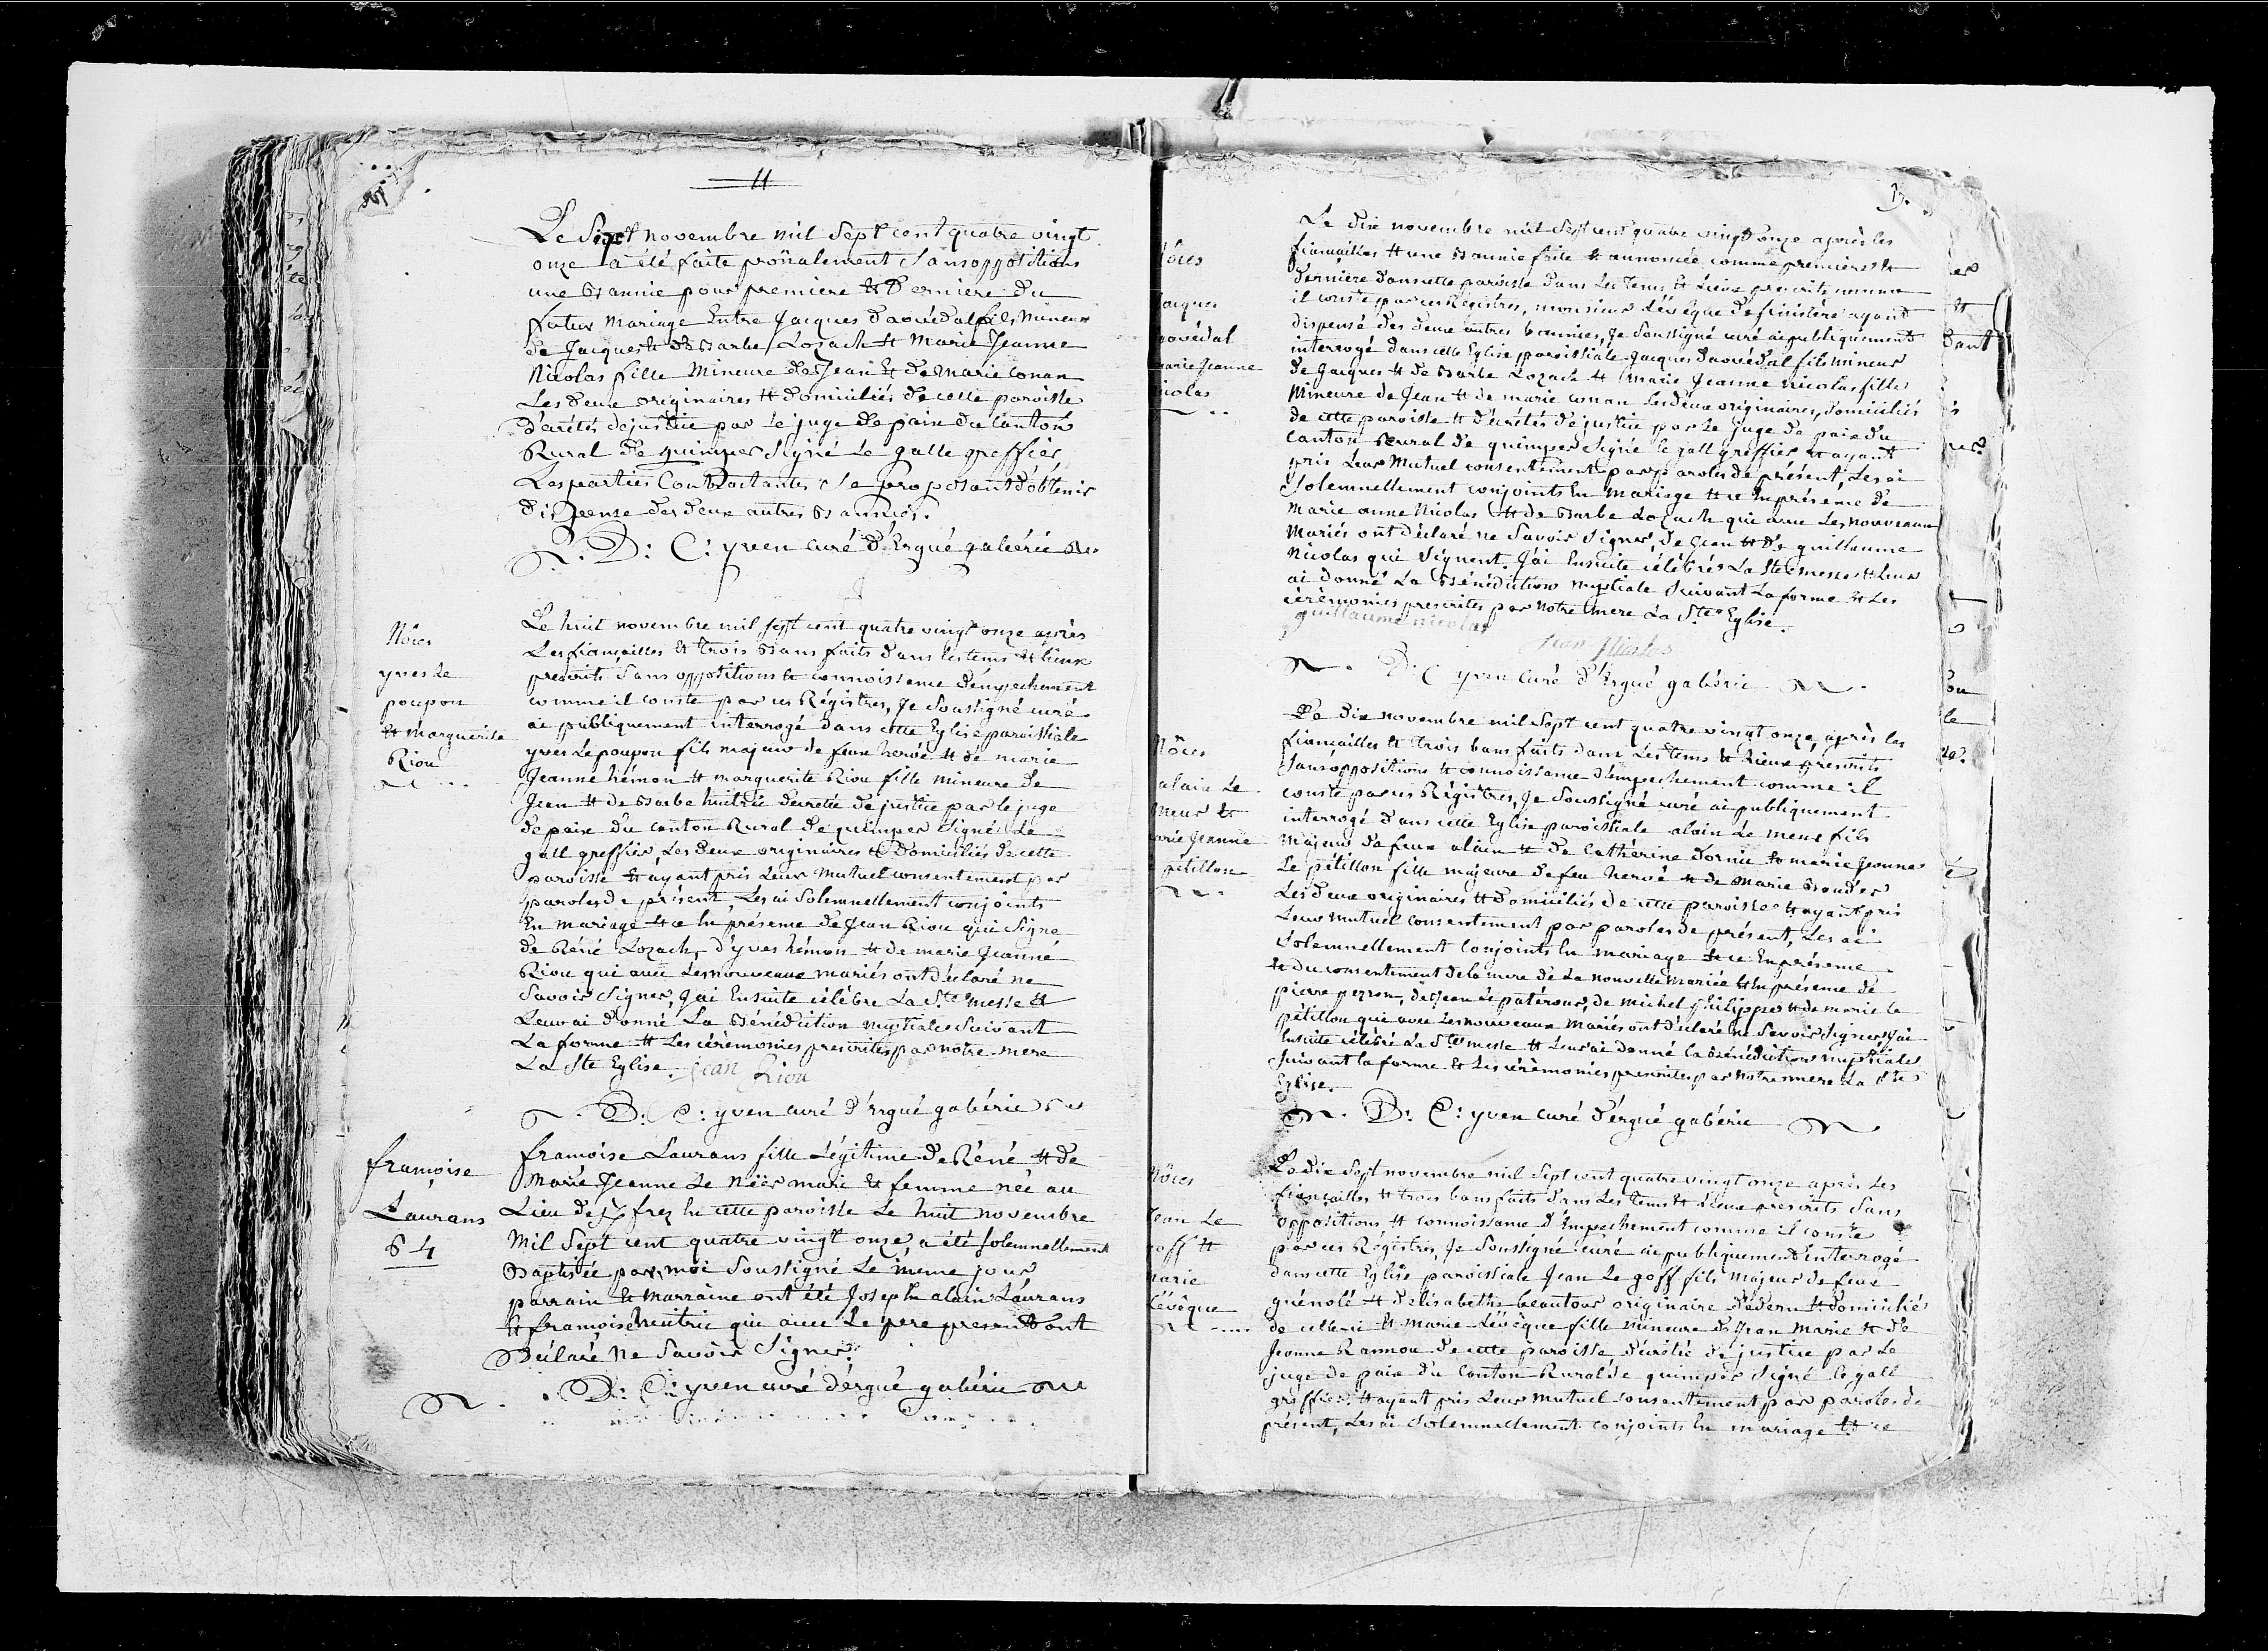 11
Le Sixt novembre mil Sept cent quatre vingt
onze a été faite prônalement Sans oppositions
une Bannie pour premiere et Derniere du
futur Mariage Entre Jacques Daouédal fils Mineur
de Jacques et de Barbe Lozach et Marie Jeanne
Nicolas fille Mineure de Jean et de Marie Conan
Les deux originaires et domiciliés de cette paroisse
Décrétés de justice par le juge de paix du Canton
Rural de quimper Signé Le galle greffier
Les parties Contractantes Se proposant d'obtenir
dispense des deux autres Bannies.
D: C: yven curé d'Ergué gabéric
Nôces
yves Le
poupon
et Marguerite
Riou
Le huit novembre mil sept cent quatre vingt onze après
Les fiançailles et trois Bans faits dans les tems et lieux
prescrits Sans oppositions et connoissance d'empechement
comme il conste par ces Régistres, Je Soussigné curé
ai publiquement interrogé dans cette Eglise paroissiale
yves Le poupon fils majeur de feux hervé et de marie
Jeanne hémon et marguerite Riou fille mineure de
Jean et de Barbe huitric décretée de justice par le juge
de paix du canton Rural de quimper Signé Le
gall greffier, Les deux originaires et Domiciliés de cette
paroisse et ayant pris Leur Mutuel consentement par
paroles de présent, Les ai Solemnellement conjoints
En mariage et ce En présence de Jean Riou qui Signe
de Réné Lozach, d'yves hémon et de marie Jeanne
Riou qui avec Les nouveaux mariés ont déclaré ne
Savoir Signer, J'ai Ensuite célébré La Ste messe et
Leur ai donné La Bénédiction nuptiale Suivant
La forme et Les cérémonies prescrites par notre mere
La Ste Eglise. Jean Riou
D: C: yven curé d'Ergué gabéric
françoise
Laurans
64
françoise Laurans fille Légitime de Réné et de
Marie Jeanne Le Néis mari et femme née au
Lieu de frez En cette paroisse Le huit novembre
Mil Sept cent quatre vingt onze a été Solemnellement
Baptisée par moi Soussigné Le même jour
parrain et Marraine ont été Joseph alain Laurans
et françoise huitric qui avec Le pere present ont
Déclaré ne Savoir Signer.
D: C: yven curé d'ergué gabéric
13.
Nôces
Jacques
aouédal
marie Jeanne
nicolas
Le dix novembre mil Sept cent quatre vingt onze après les
fiançailles et une Bannie faite et annoncée comme premiere et
derniere dans cette paroisse dans Les Tems et Lieux prescrits comme
il conste par ces Régistres, monsieur L'évêque de finistère ayant
dispensé des deux autres bannies, Je Soussigné curé ai publiquement
interrogé dans cette Eglise paroissiale Jacques Daouédal fils mineur
de Jacques et de Barbe Lozach et Marie Jeanne nicolas fille
Mineure de Jean et de marie conan Les deux originaires, domiciliés
de cette paroisse et décrétés de justice par le juge de paix du
Canton Rural de quimper Signé le gall greffier et ayant
pris Leur Mutuel consentement par paroles de présent, Les ai
Solemnellement conjoints En mariage et ce En présence de
Marie anne Nicolas et de Barbe Lozach qui avec Les nouveaux
Mariés ont déclaré ne Savoir Signer, de Jean et de guillaume
Nicolas qui Signent. J'ai Ensuite célébré La Ste messe et Leur
ai donné La Bénédiction nuptiale Suivant La forme et Les
cérémonies prescrites par Notre mere La Ste Eglise.
guillaume nicolas
Jean Nicolas
D: C yven Curé d'Ergué gabéric
Nôces
alain Le
meur et
marie Jeanne
pétillon
Le dix novembre mil Sept cent quatre vingt onze, après les
fiançailles et trois bans faits dans Les Tems et Lieux prescrits
Sans oppositions et connoissance d'empechement comme il
conste par ces Régistres, Je Soussigné curé ai publiquement
interrogé dans cette Eglise paroissiale alain Le meur fils
Majeur de feux alain et de Cathérine dornic et marie Jeanne
Le pétillon fille majeure de feu hervé et de Marie
Les deux originaires et domiciliés de cette paroisse et ayant pris
Leur mutuel consentement par paroles de présent, Les ai
Solemnellement Conjoints En mariage et ce En présence
et du consentement de la mere de La nouvelle Mariée et En présence de
pierre perron, de Jean Le patérour, de Michel philippe et de marie le
pétillon qui avec Les nouveaux Mariés ont déclaré ne Savoir Signer, J'ai
Ensuite célébré La Ste messe et Leur ai donné la bénédiction nuptiale
Suivant la forme et Les cérémonies prescrites par Notre mere La Ste
Eglise.
D: C: yven curé d'ergué gabéric
Nôces
Jean Le
goff et
marie
Lévêque
Le dix Sept novembre mil Sept cent quatre vingt onze après Les
fiançailles et trois bans faits dans Les tems et Lieux prescrits Sans
oppositions et connoissance d'Empechement comme il conste
par ces Régistres, Je Soussigné curé ai publiquement interrogé
dans cette Eglise paroissiale Jean Le goff fils Majeur de feux
guénolé et d'élisabeth beautour originaire d'Edern et domicilié
de celle-ci et Marie Lévêque fille mineure de Jean Marie et de
Jeanne Rannou de cette paroisse décrétée de justice par Le
juge de paix du Canton Rural de quimper Signé le gall
greffier et ayant pris Leur Mutuel consentement par paroles de
présent, Les ai Solemnellement conjoints En mariage et ce